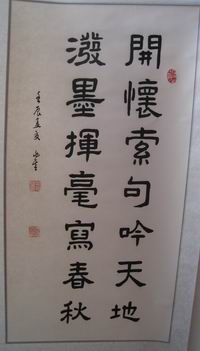 開懷索句吟天地
潑墨揮毫寫春秋
壬辰孟夏